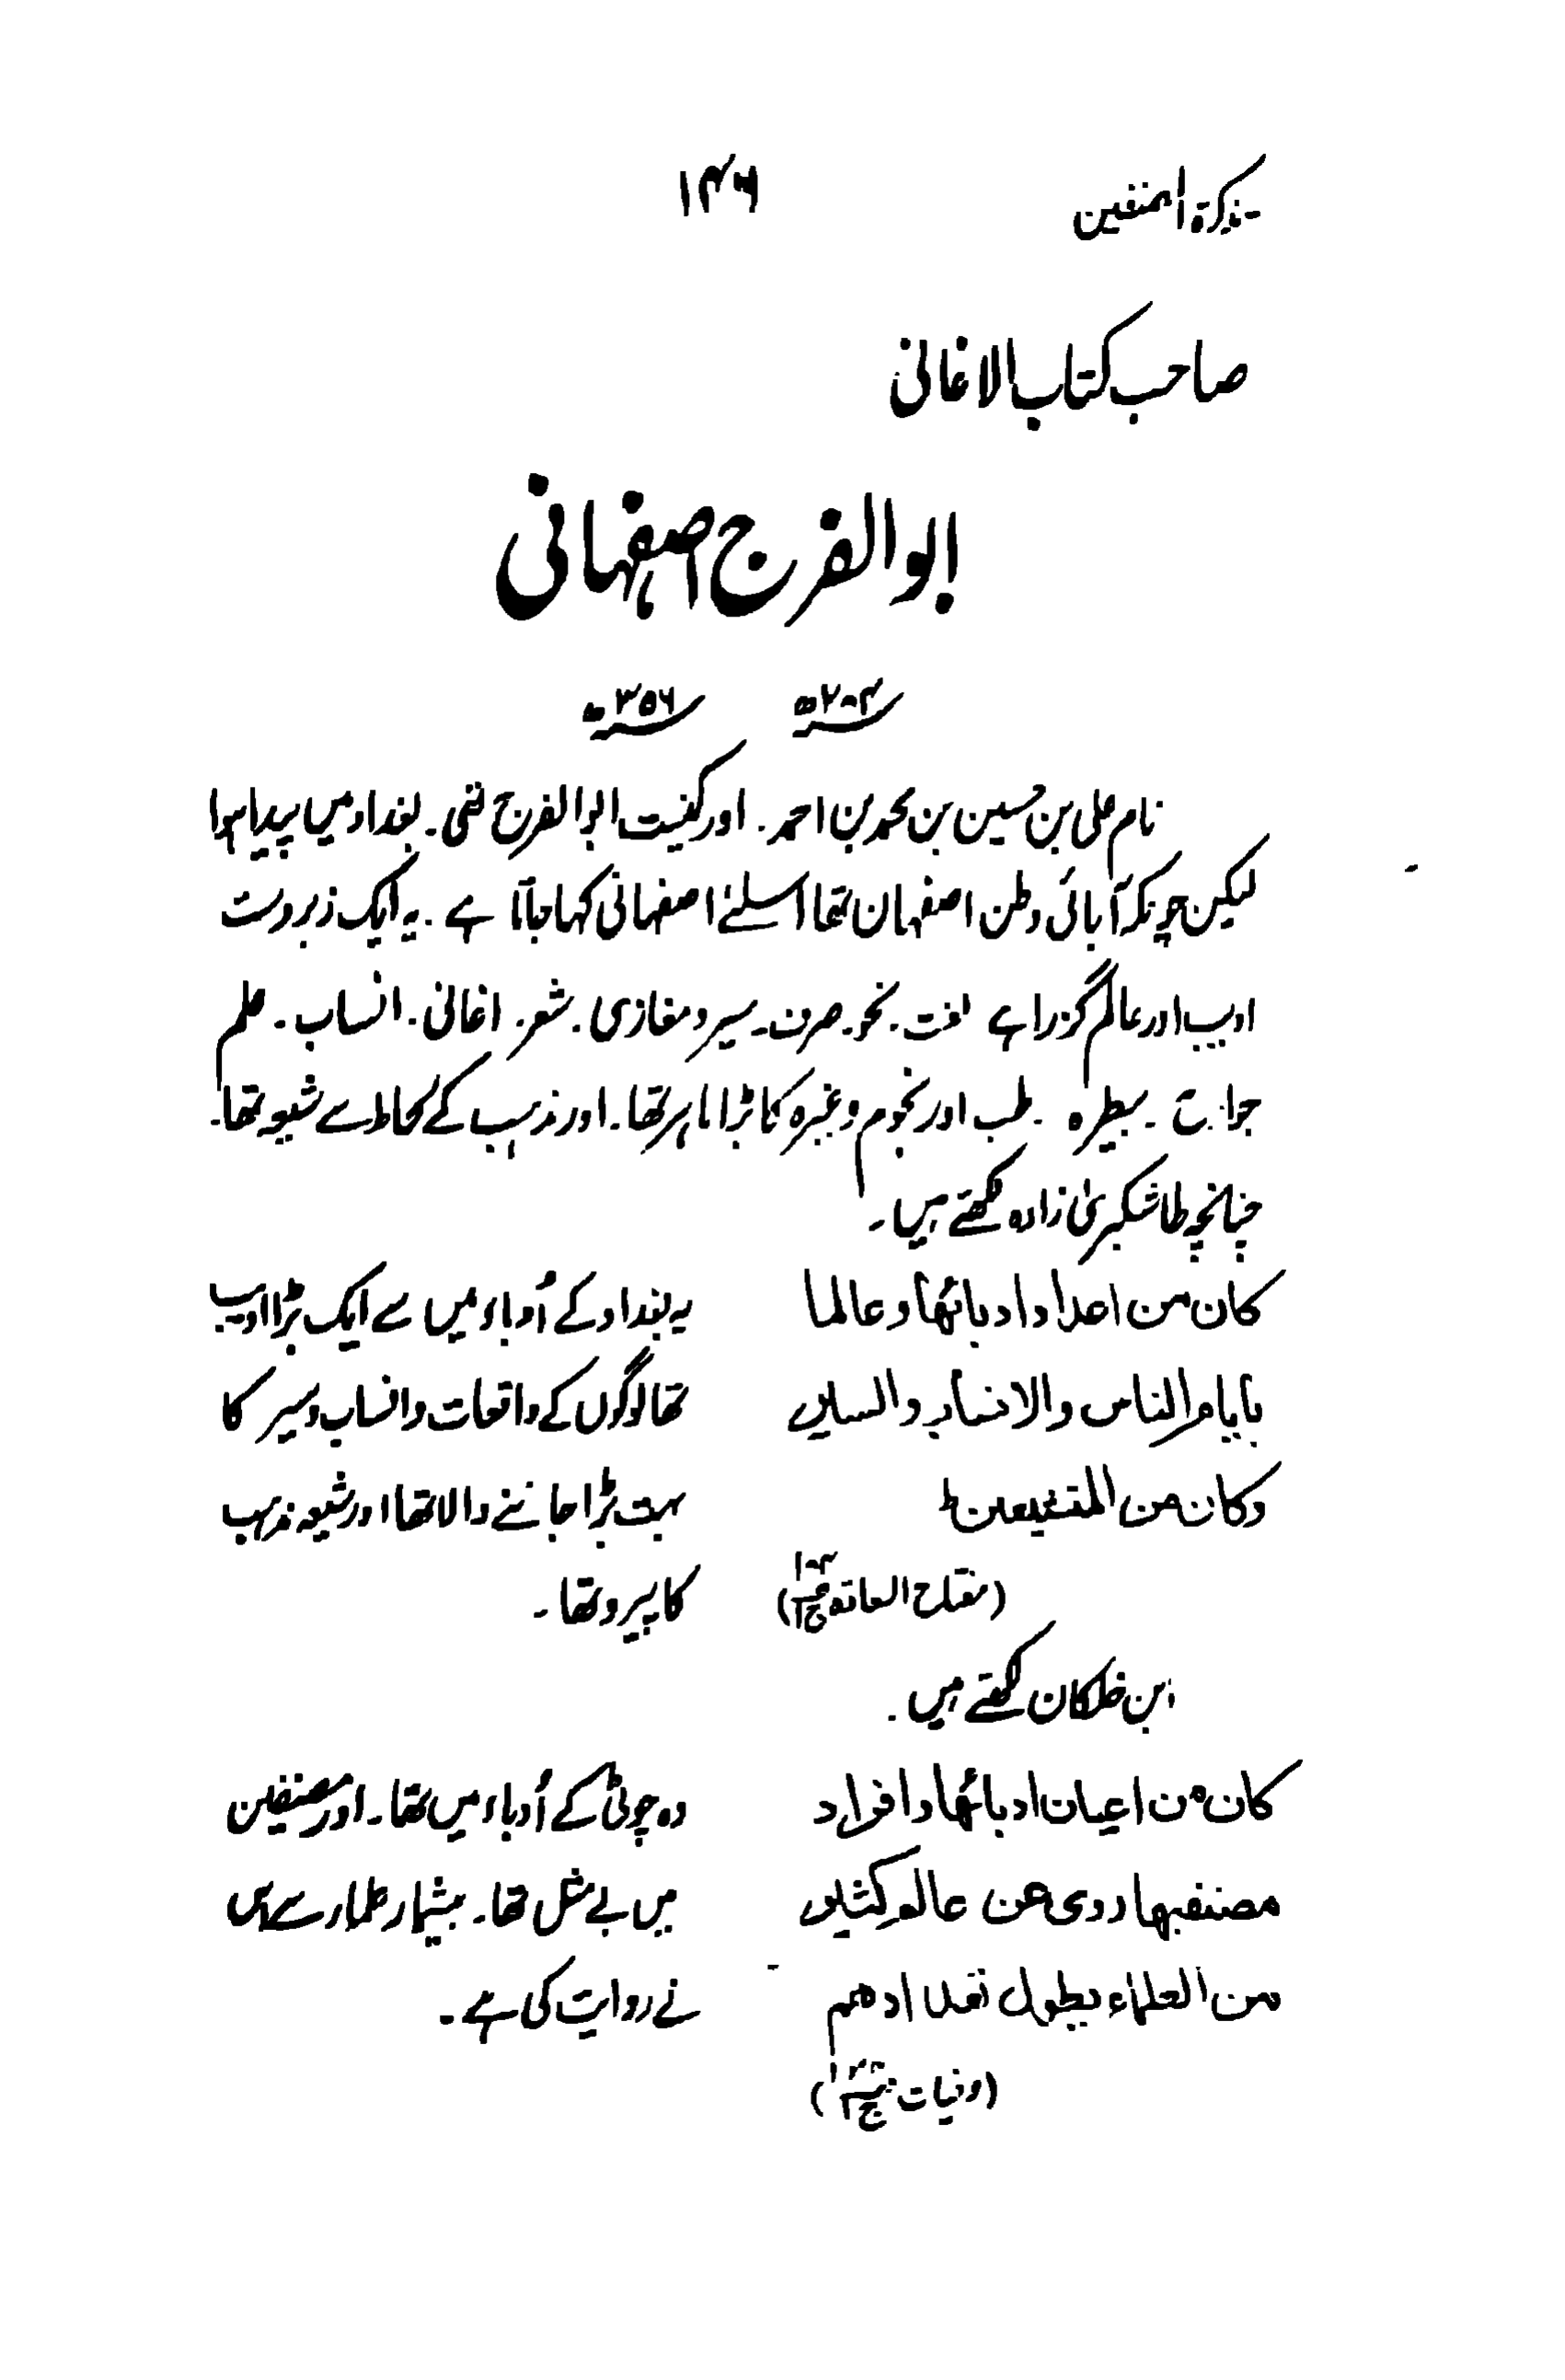 تذکرۃ المصنفین ۱۴۶
صاحب کتاب الاغانی
ابو الفرج اصفہانی
سنہ ۲۸۴ھ سنہ ۳۵۶ھ
نام علی بن حسین بن محمد بن احمد. اور کنیت ابو الفرج تھی۔ بغداد میں پیدا ہوا
لیکن چونکہ آبائی وطن اصفہان تھا اسلئے اصفہانی کہا جاتا ہے۔ یہ ایک زبردست
ادیب اور عالم گزرا ہے لغت. نحو. صرف۔ سیر و مغازی. شعر. اغانی. انساب۔ علم
بیطرہ. طب اور نجوم وغیرہ کا بڑا ماہر تھا۔ اور مذہب کے لحاظ سے شیعہ تھا۔
چنانچہ طاشکبریٰ زادہ لکھتے ہیں۔
کان من ادبائها و عالما
بایام الناس والانساب والسیر
وکان من المتشیعین ط
(مفتاح السعادۃ ج۱)
یہ بغداد کے اُدباء میں سے ایک بڑا ادیب
تھا لوگوں کے واقعات و انساب و سیر کا
بہت بڑا جاننے والا تھا اور شیعہ مذہب
کا پیرو تھا۔
ابن خلکان لکھتے ہیں.
کان من اعیان ادبائها و افراد
مصنفیها روی عن عالم کثیر
من العلماء یطول تعدادهم
(وفیات ج۱)
وہ چوٹی کے اُدباء میں تھا۔ اور مصنفین
میں بے مثل تھا۔ بیشمار علماء سے اس
نے روایت کی ہے۔